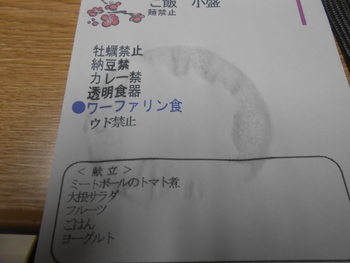 ご飯 小盛
麺禁止
牡蠣禁止
納豆禁
カレー禁
透明食器
●ワーファリン食
ウド禁止
＜献立＞
ミートボールのトマト煮
大根サラダ
フルーツ
ごはん
ヨーグルト